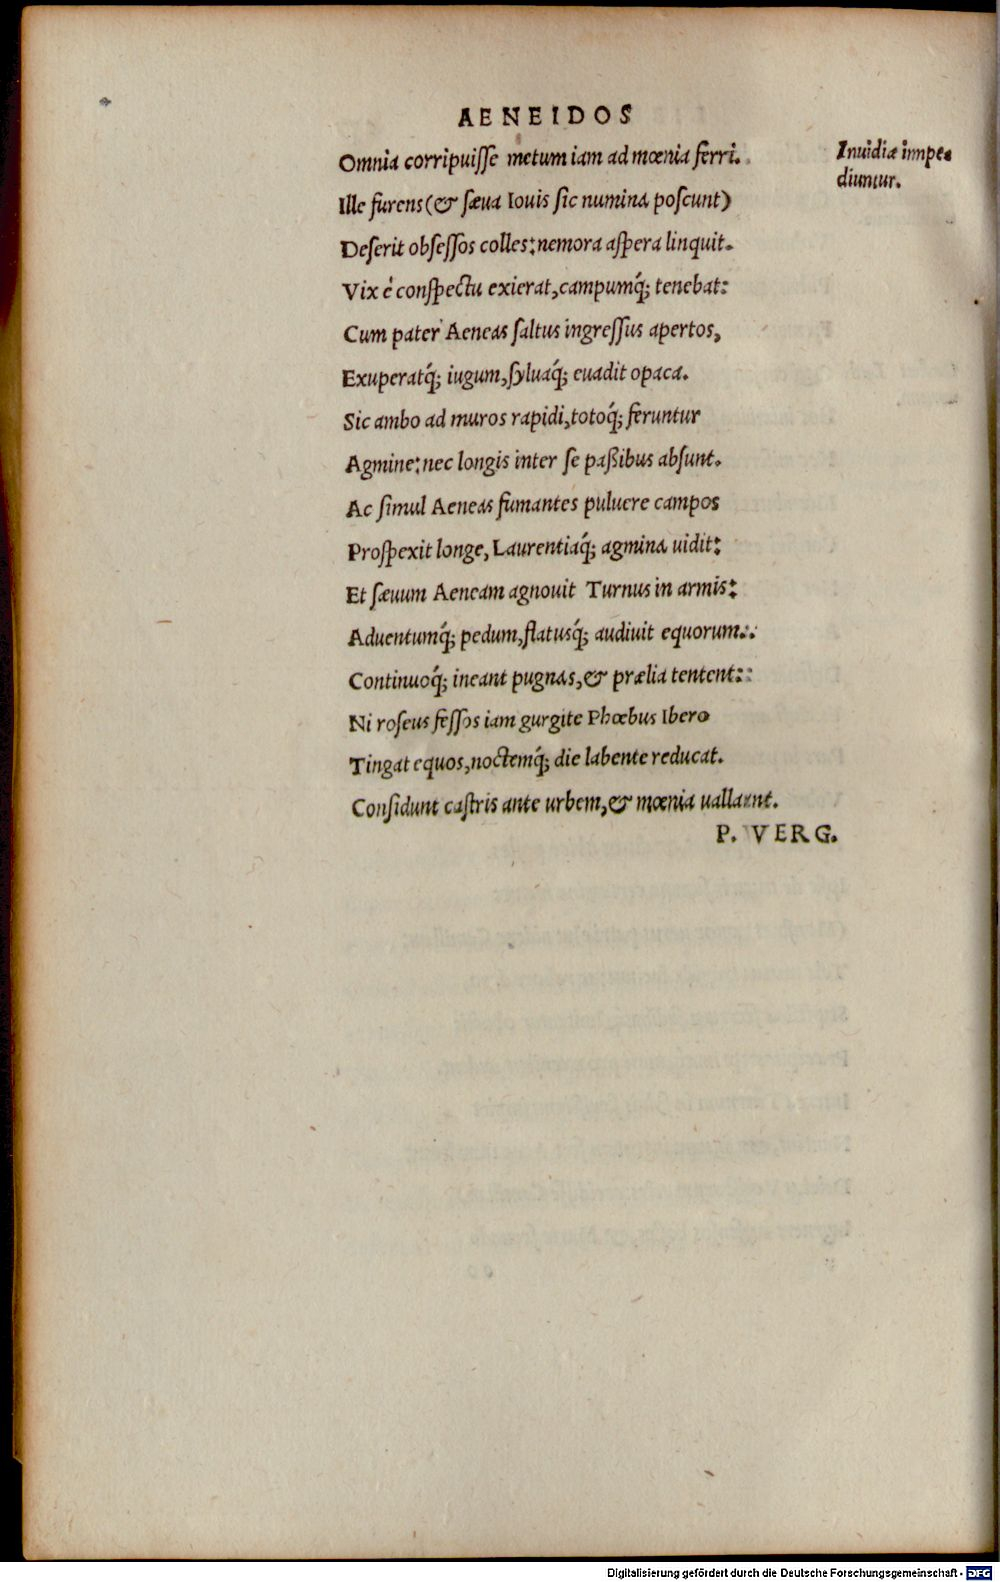 AENEIDOS
Omnia corripuisse metum iam ad mœnia ferri.
Inuidiæ inmpe
diuntur.
Ille furens (& sæua Iouis sic numina poscunt)
Deserit obsessos colles: nemora aspera linquit.
Vix è conspectu exierat, campumq́; tenebat:
Cum pater Aeneas saltus ingressus apertos,
Exuperatq́; iugum, syluaq́; euadit opaca.
Sic ambo ad muros rapidi, totoq́; feruntur
Agmine: nec longis inter se paßibus absunt.
Ac simul Aeneas fumantes puluere campos
Prospexit longe, Laurentiaq́; agmina uidit:
Et sæuum Aeneam agnouit Turnus in armis:
Aduentumq́; pedum, flatusq́; audiuit equorum.
Continuoq́; ineant pugnas, & prælia tentent:
Ni roseus fessos iam gurgite Phœbus Ibero
Tingat equos, noctemq́; die labente reducat.
Considunt castris ante urbem, & mœnia
P. VERG.
Digitalisierung gefördert durch die Deutsche Forschungsgemeinschaft - DFG